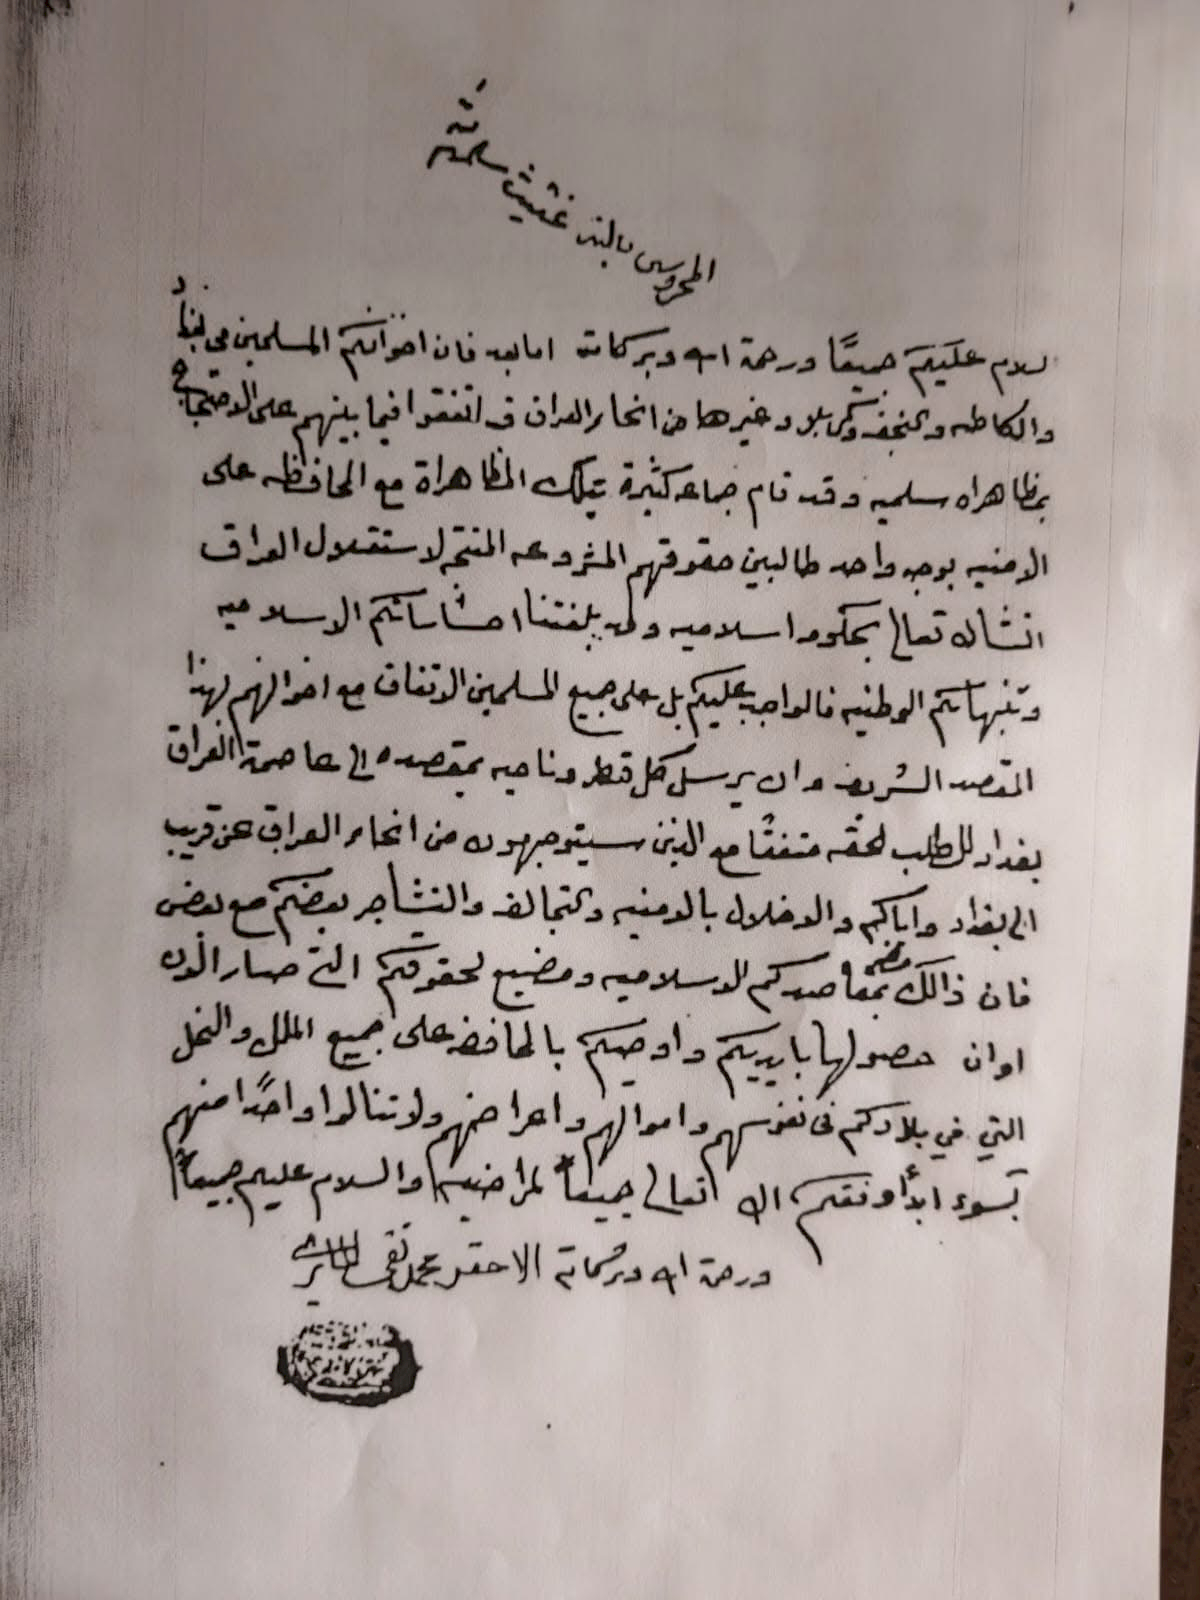 المحروس بالنبي غثيث سلمه
لسلام عليكم جميعًا ورحمة الله وبركاته اما بعد فان اخوانكم المسلمين في بغداد
والكاظمه والنجف وكربلا وغيرها من انحاء العراق قد اتفقوا فيما بينهم على الاحتجاج
بمظاهراه سلميه وقد قام جماعه كثيرة بتلك المظاهراة مع المحافظه على
الامنيه بوجه واحد طالبين حقوقهم المشروعه المنتجه لاستقلال العراق
انشاالله تعالى بحكومه اسلاميه وقد بلغتنا احساساتكم الاسلاميه
وتنبهاتكم الوطنيه فالواجب عليكم بل على جميع المسلمين الاتفاق مع اخوانهم بهذا
المقصد الشريف وان يرسل كل قطر وناحيه بمقصده الى عاصمة العراق
بغداد للطلب لحقه متفقًا مع الذين سيتوجهون من انحاء العراق عن قريب
الى بغداد واياكم والاخلال بالامنيه والتخالف والتشاجر بعضكم مع بعض
فان ذالك مضر بمقاصدكم الاسلاميه ومضيع لحقوقكم التي صار الان
اوان حصولها بايديكم واوصيكم بالمحافضه على جميع الملل والنحل
التي في بلادكم في نفوسهم واموالهم واعراضهم ولا تنالوا واحدًا منهم
بسوء ابدًا وفقكم الله تعالى جميعاً لمراضيه والسلام عليكم جميعاً
ورحمة الله وبركاته الاحقر محمد تقي الحائري